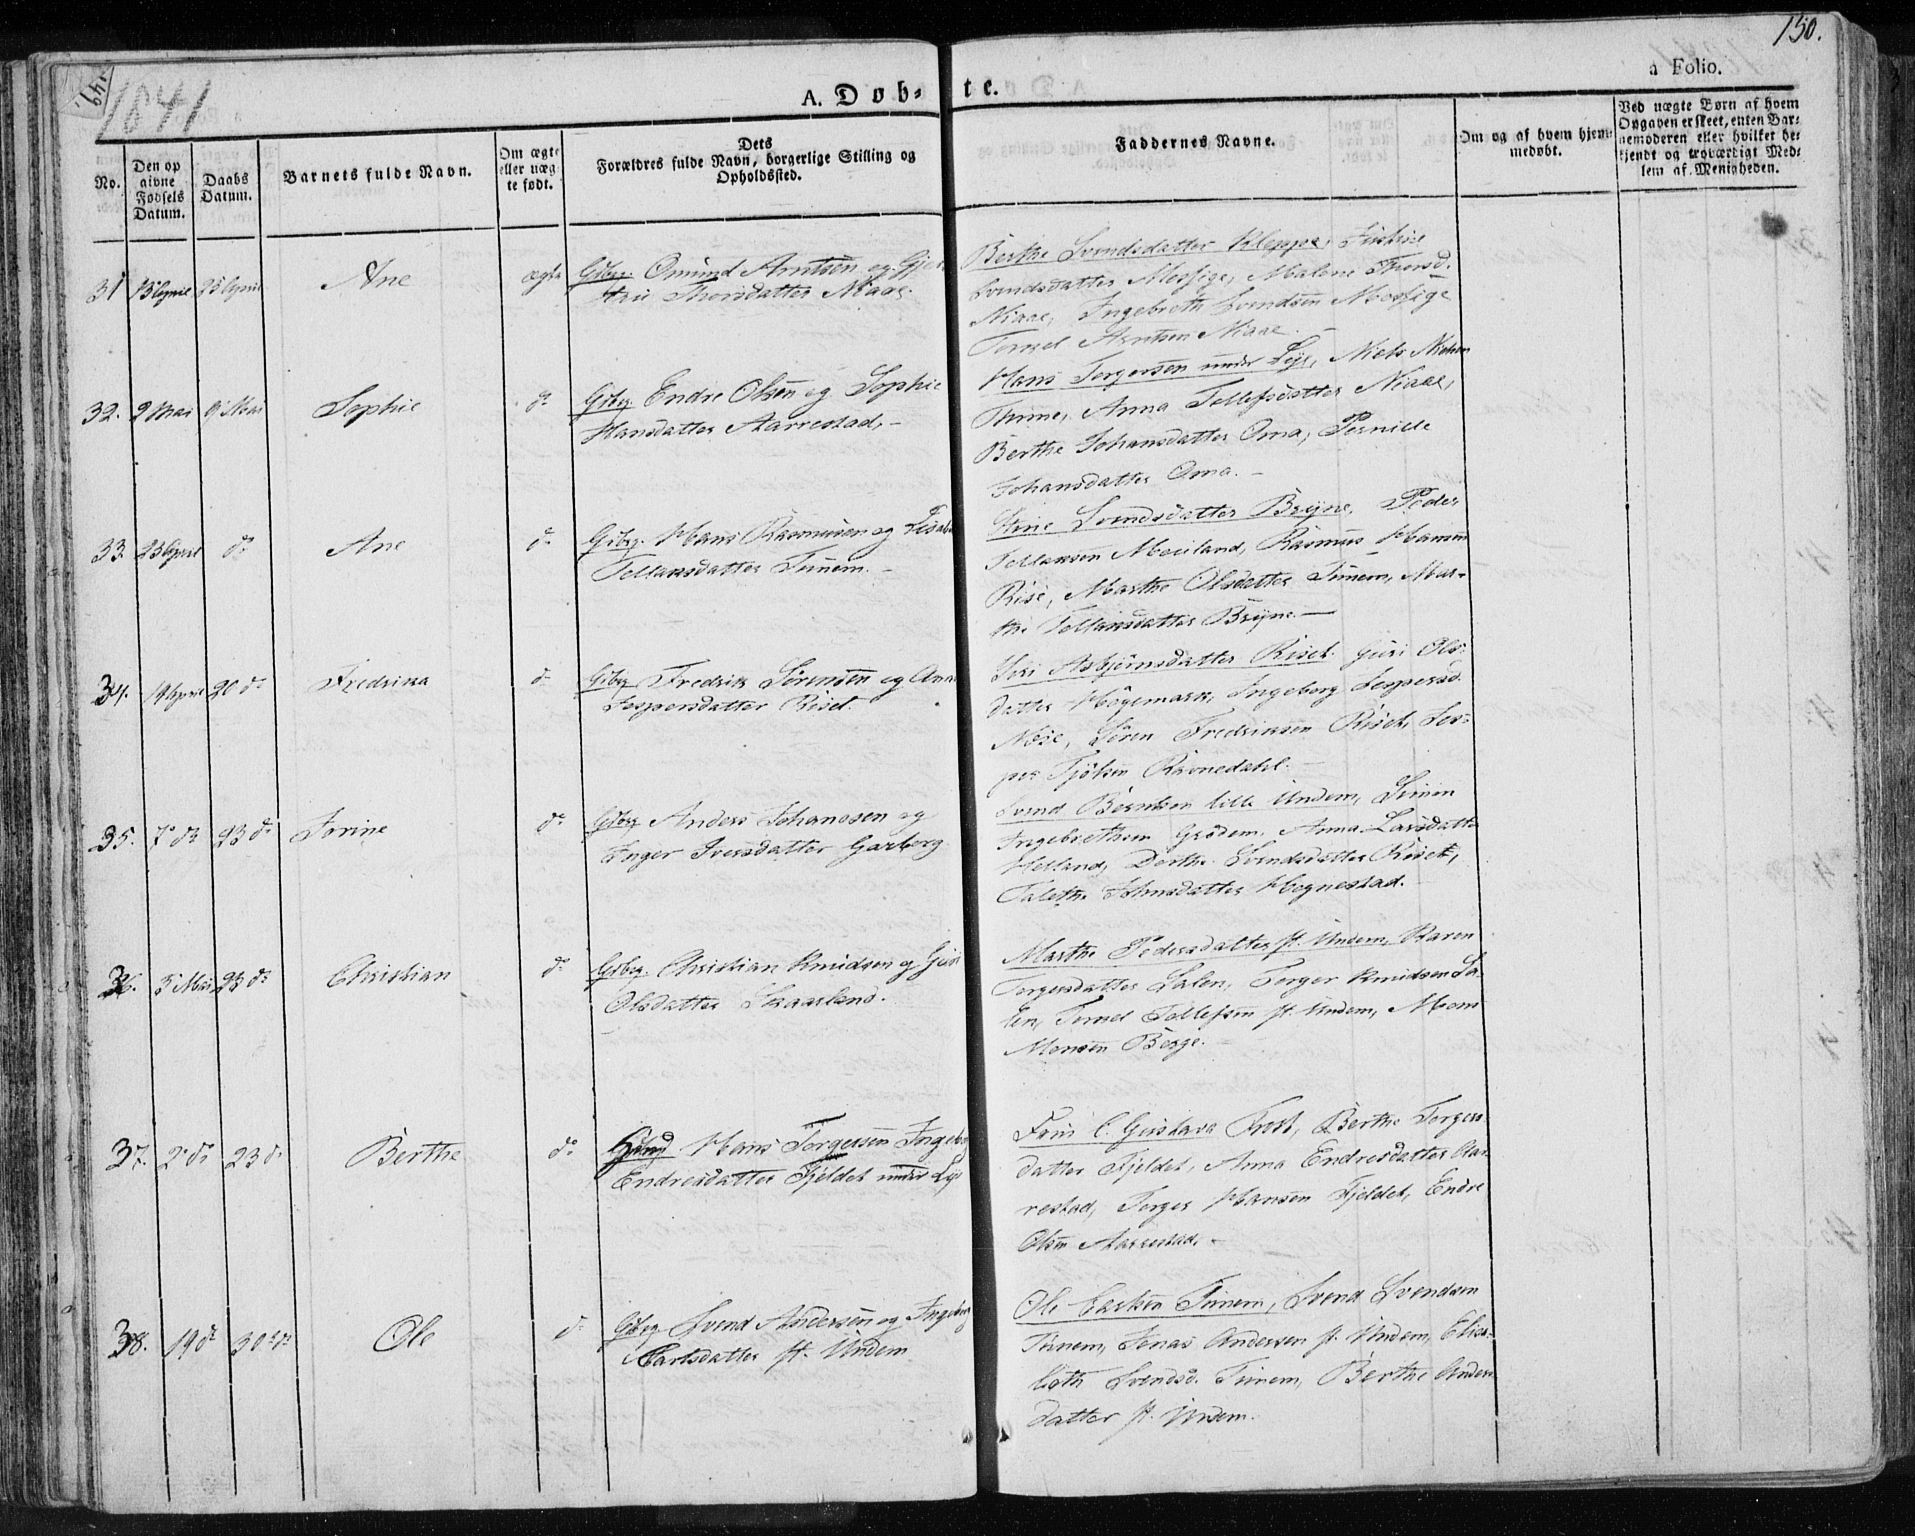 149.
150.
1841
A. Døb-
te.
a Folio.
No.
Den op
givne
Fødsels
Datum.
Daabs
Datum.
Barnets fulde Navn.
Om ægte
eller uæg
te født.
Dets
Forældres fulde Navn, borgerlige Stilling og
Opholdssted.
Faddernes Navne.
Om og af hvem hjem
medøbt.
Ved uægte Børn af hvem
Opgaven er skeet, enten Bar-
nemoderen eller hvilket be-
kjendt og troværdigt Med-
lem af Menigheden.
31
Ane
ægte
Gdbrg. Omund Arntsen og
Thorsdatter Niaae.
Berthe Svendsdatter Kleppe,
Svendsdatter Mossige, Malene Thorsd.
Niaae, Ingebreth Svendsen Mossige
Tørgel Arntsen Niaae.
32. 2 Mai 9 Mai
Sophie
do
Gdbrg. Endre Olsen og Sophie
Hansdatter Aarrestad,
Hans Torgersen under Lÿe, Niels Nielsen
Thime, Anna Tollefsdatter Niaae,
Berthe Johansdatter Oma, Pernille
Johansdatter Oma.
33. 23 April do
Ane
do
Gdbrg. Hans Rasmusen og
Tollansdatter Tunem.
Stine Svendsdatter Brÿne, Peder
Tollansen Moiland, Rasmus
Marthe Olsdatter Tunem, Mar-
the Tollansdatter Brÿne.
34. 20 do
Fredrikka
do
Gdbrg Fredrik Sørensen og Anna
Jespersdatter Riset.
Siri Asbjørnsdatter Riset. Guri Ols-
datter Høgemark, Ingeborg Jespersd.
Søren Fredriksen Riset, Jes-
per Ravnedahl.
35. 7de do 23 do
Sorine
do
Gdbrg Anders Johanssen og
Inger Iversdatter Garborg
Svend Berntsen lille Undem, Simen
Ingebrethsen Grødem. Anna Larsdatter
Helland, Dorthe Svendsdatter Riset,
Talethe Johnsdatter Hognestad.
36. 5 Mai 23 do
Christian
do
Gdbrg. Christian Knudsen og Guri
Olsdatter Skaarland.
Marthe Pedersdatter st. Undem, Karen
Torgersdatter Salen, Torger Knudsen Sa-
len, Tørgel Tollefsen st. Undem, Mons
Monsen Berge.
37. 2 do 23 do
Berthe
do
Hans Torgersen Ingeborg
Endresdatter Fjeldet under Lÿe
C. Gustava Krog, Berthe Torgers-
datter Fjeldet, Anna Endresdatter Aar-
restad, Torger Hansen Fjeldet, Endre
Olsen Aarrestad.
38. 19 do 30 do
Ole
do
Gdbrg Svend Andersen og Ingeborg
Carlsdatter st. Undem
Ole Carlsen Tunem, Svend Svendsen
Tunem, Jonas Andersen st. Undem, Elisa-
beth Svendsd. Tunem, Berthe Anders-
datter st. Undem.